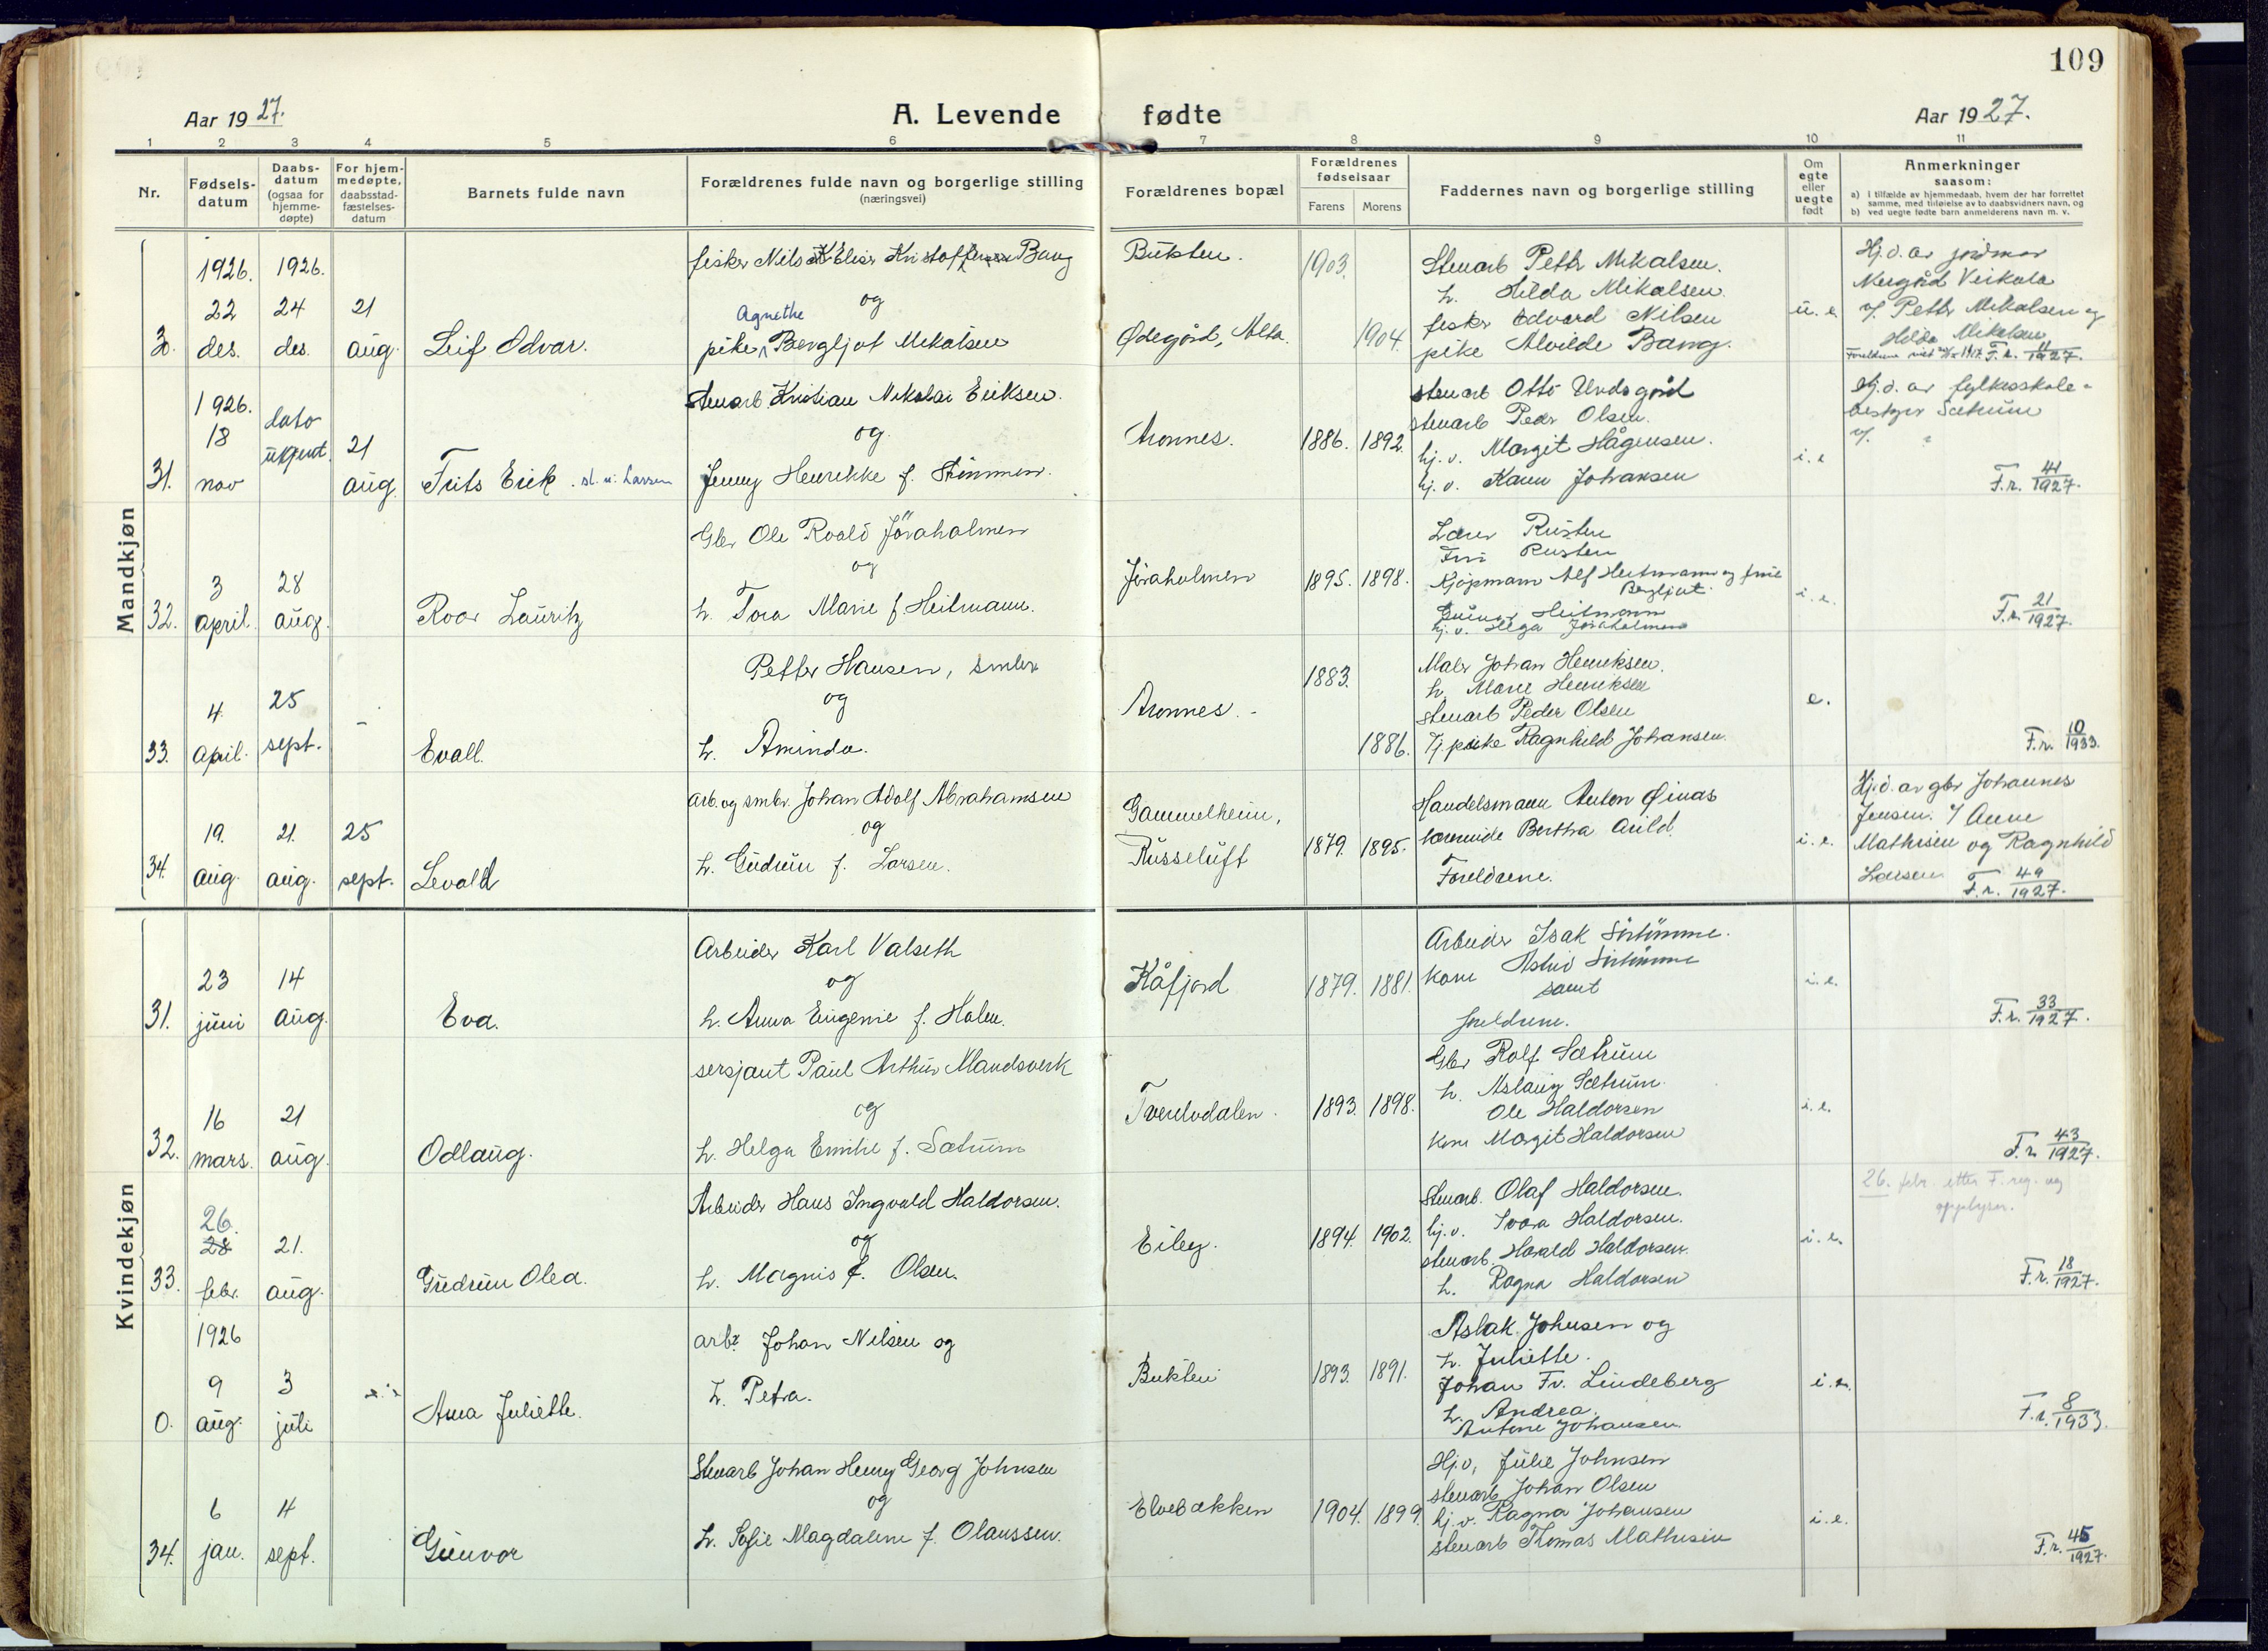 109
Aar 1927.
A. Levende fødte
Aar 1927.
1 2 3 4 5 6 7 8 9 10 11
Nr.
Fødsels-
datum
Daabs-
datum
(ogsaa for
hjemme-
døpte)
For hjem-
medøpte,
daabsstad-
fæstelses-
datum
Barnets fulde navn
Forældrenes fulde navn og borgerlige stilling
(næringsvei)
Forældrenes bopæl
Forældrenes
fødselsaar
Farens Morens
Faddernes navn og borgerlige stilling
Om
egte
eller
uegte
født
Anmerkninger
saasom:
a) i tilfælde av hjemmedaab, hvem der har forrettet
samme, med tilføielse av to daabsvidners navn, og
b) ved uegte fødte barn anmelderens navn m. v.
Mandkjøn
30.
1926.
22
des.
1926.
24
des.
21
aug.
Leif Odvar.
fisker Nils Elias Kristoffersen Bang
og
Agnethe
pike Bergljot Mikalsen
Bukten.
Ødegård, Alta.
1903.
1904.
Stenarb Petter Mikalsen.
h. Hilda Mikalsen.
fisker Edvard Nilsen
pike Alvilde Bang.
u. e.
Hj.d. av jordmor
v/ Petter Mikalsen og
Hilda Mikalsen
F. r. 11/1927.
31.
1926.
18
nov
dato
ukjent.
21
aug.
Frits Erik
Stenarb. Kristian Nikolai Eriksen.
og
Jenny Henrikke f. Strimmen.
Aronnes.
1886. 1892.
stenarb Otto Undsgård
stenarb Peder Olsen.
hj. v. Margit Hågensen.
hj. v. Karen Johansen
i. e
Hj. d. av fylkesskole-
bestyrer Sætrum
v/. "
F.r. 41/1927.
32.
3
april.
28
aug.
Roar Lauritz
Gbr Ole Roald Jöraholmen
og
h. Tora Marie f. Heitmann.
Jöraholmen
1895. 1898.
Lærer Rusten
Fru Rusten
Kjøpmann Alf Heitmann og frue
Bergljot.
Gunnar Heitmann
hj. v. Helga Jöraholmen
i. e.
F.r. 21/1927.
33.
4
april.
25
sept.
-
Evall.
Petter Hansen, smbr
og
h. Aminda.
Aronnes. -
1883.
1886.
Maler Johan Henriksen.
h. Marie Henriksen
stenarb Peder Olsen
Tj. pike Ragnhild Johansen.
e.
F.r. 10/1933.
34.
19.
aug.
21.
aug.
25
sept.
Levald
arb. og smbr. Johan Adolf Abrahamsen
og
h. Gudrun f. Larsen.
Gammelheim,
Russeluft
1879. 1895.
Handelsmann Anton Øinas
Bertha Arild.
Foreldrene.
i. e.
Hj.d. av gbr Johannes
Jensen. v/ Anne
Mathisen og Ragnhild
Larsen F. r. 49/1927.
Kvindekjøn
31.
23
juni
14
aug.
Eva.
Arbeider Karl Valseth
og
h. Anna Eugenie f. Holm.
Kåfjord
1879. 1881.
Arbeider Isak
kone Astrid
samt
foreldrene.
i. e.
F.r. 33/1927.
32.
16
mars.
21
aug.
Odlaug.
sersjant Paul Arthur Mandsverk
og
h. Helga Emilie f. Sætrum
Tverelvdalen.
1893. 1898.
Gbr Rolf Sætrum
h. Aslaug Sætrum.
Ole Haldorsen
kone Margit Haldorsen
i. e.
F.r. 43/1927.
33.
26.
28
febr.
21.
aug.
Gudrun Olea.
Arbeider Hans Ingvald Haldorsen.
og
h. Magnis f. Olsen.
Eiby.
1894. 1902.
Stenarb. Olaf Haldorsen.
hj. v. Ivara Haldorsen.
stenarb. Harald Haldorsen.
h. Ragna Haldorsen
i. e.
26. febr. etter F. reg. og
opplyser.
F.r. 18/1927.
0.
1926
9
aug.
3
juli
Anna Juliette.
arbr. Johan Nilsen og
h. Petra.
Bukten
1893. 1891.
Aslak Johnsen og
h. Juliette.
Johan Fr. Lindeberg
h. Andrea.
Antone Johansen.
i. e.
F.r. 8/1933.
34.
6
jan.
4
sept.
Gunvor
Stenarb Johan Henry Georg Johnsen
og
h. Sofie Magdalene f. Olaussen.
Elvebakken
1904. 1899.
Hj.v. Julie Johnsen
stenarb Johan Olsen
hj. v. Ragna Johansen
stenarb Thomas Mathisen
i. e.
F.r. 45/1927.